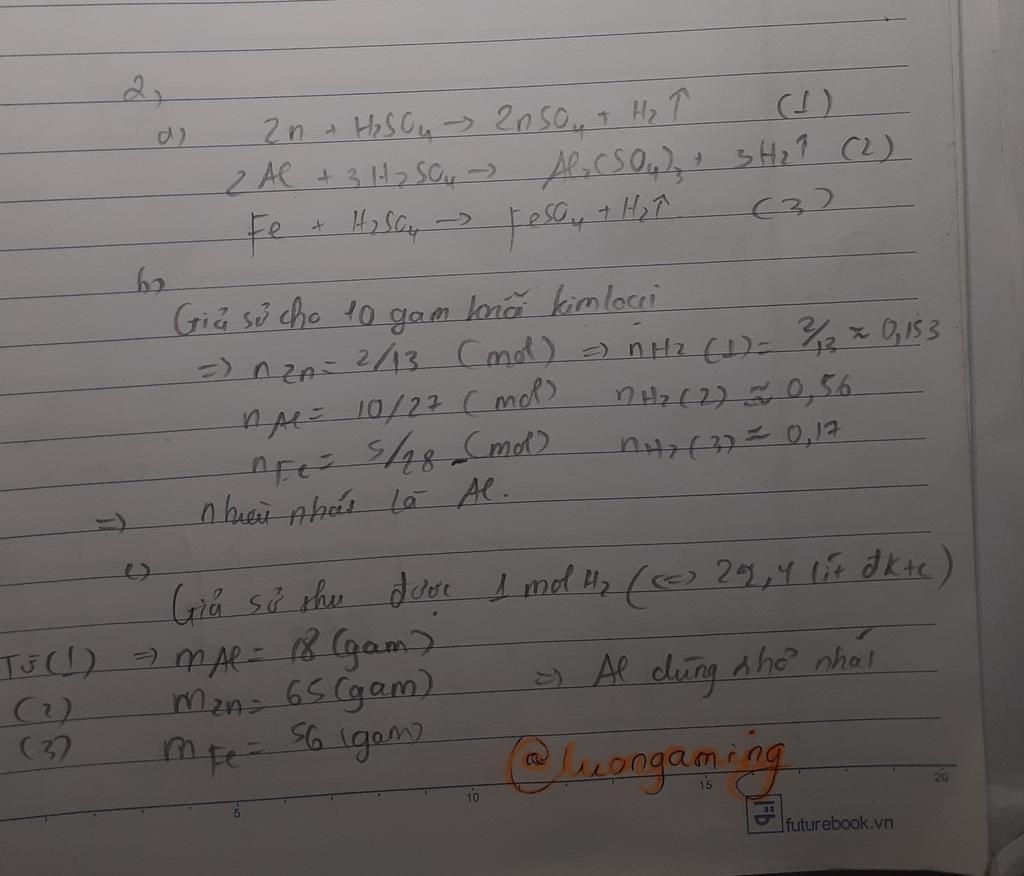 2,
a) Zn + H₂SO₄ → ZnSO₄ + H₂↑ (1)
2Al + 3H₂SO₄ → Al₂(SO₄)₃ + 3H₂↑ (2)
Fe + H₂SO₄ → FeSO₄ + H₂↑ (3)
b,
Giả sử cho 10 gam mỗi kim loại
=> nZn = 2/13 (mol) => nH₂ (1) = 2/13 ≈ 0,153
nAl = 10/27 (mol) nH₂ (2) ≈ 0,56
nFe = 5/28 (mol) nH₂ (3) = 0,17
=> nhiều nhất là Al.
c)
Giả sử thu được 1 mol H₂ (<=> 22,4 lít đktc)
Từ (1) => mAl = 18 (gam)
(2) mZn = 65 (gam) => Al dùng nhỏ nhất
(3) mFe = 56 (gam)
@luongaming
5 10 15 20
futurebook.vn